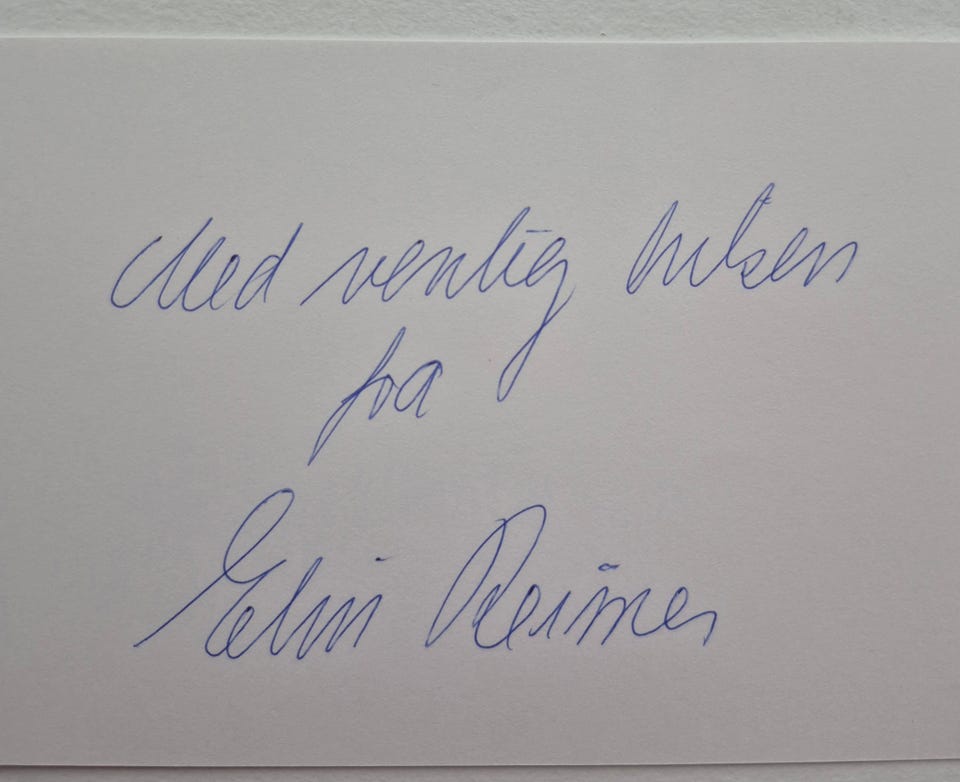 Med venlig hilsen
fra
Elin Reimer